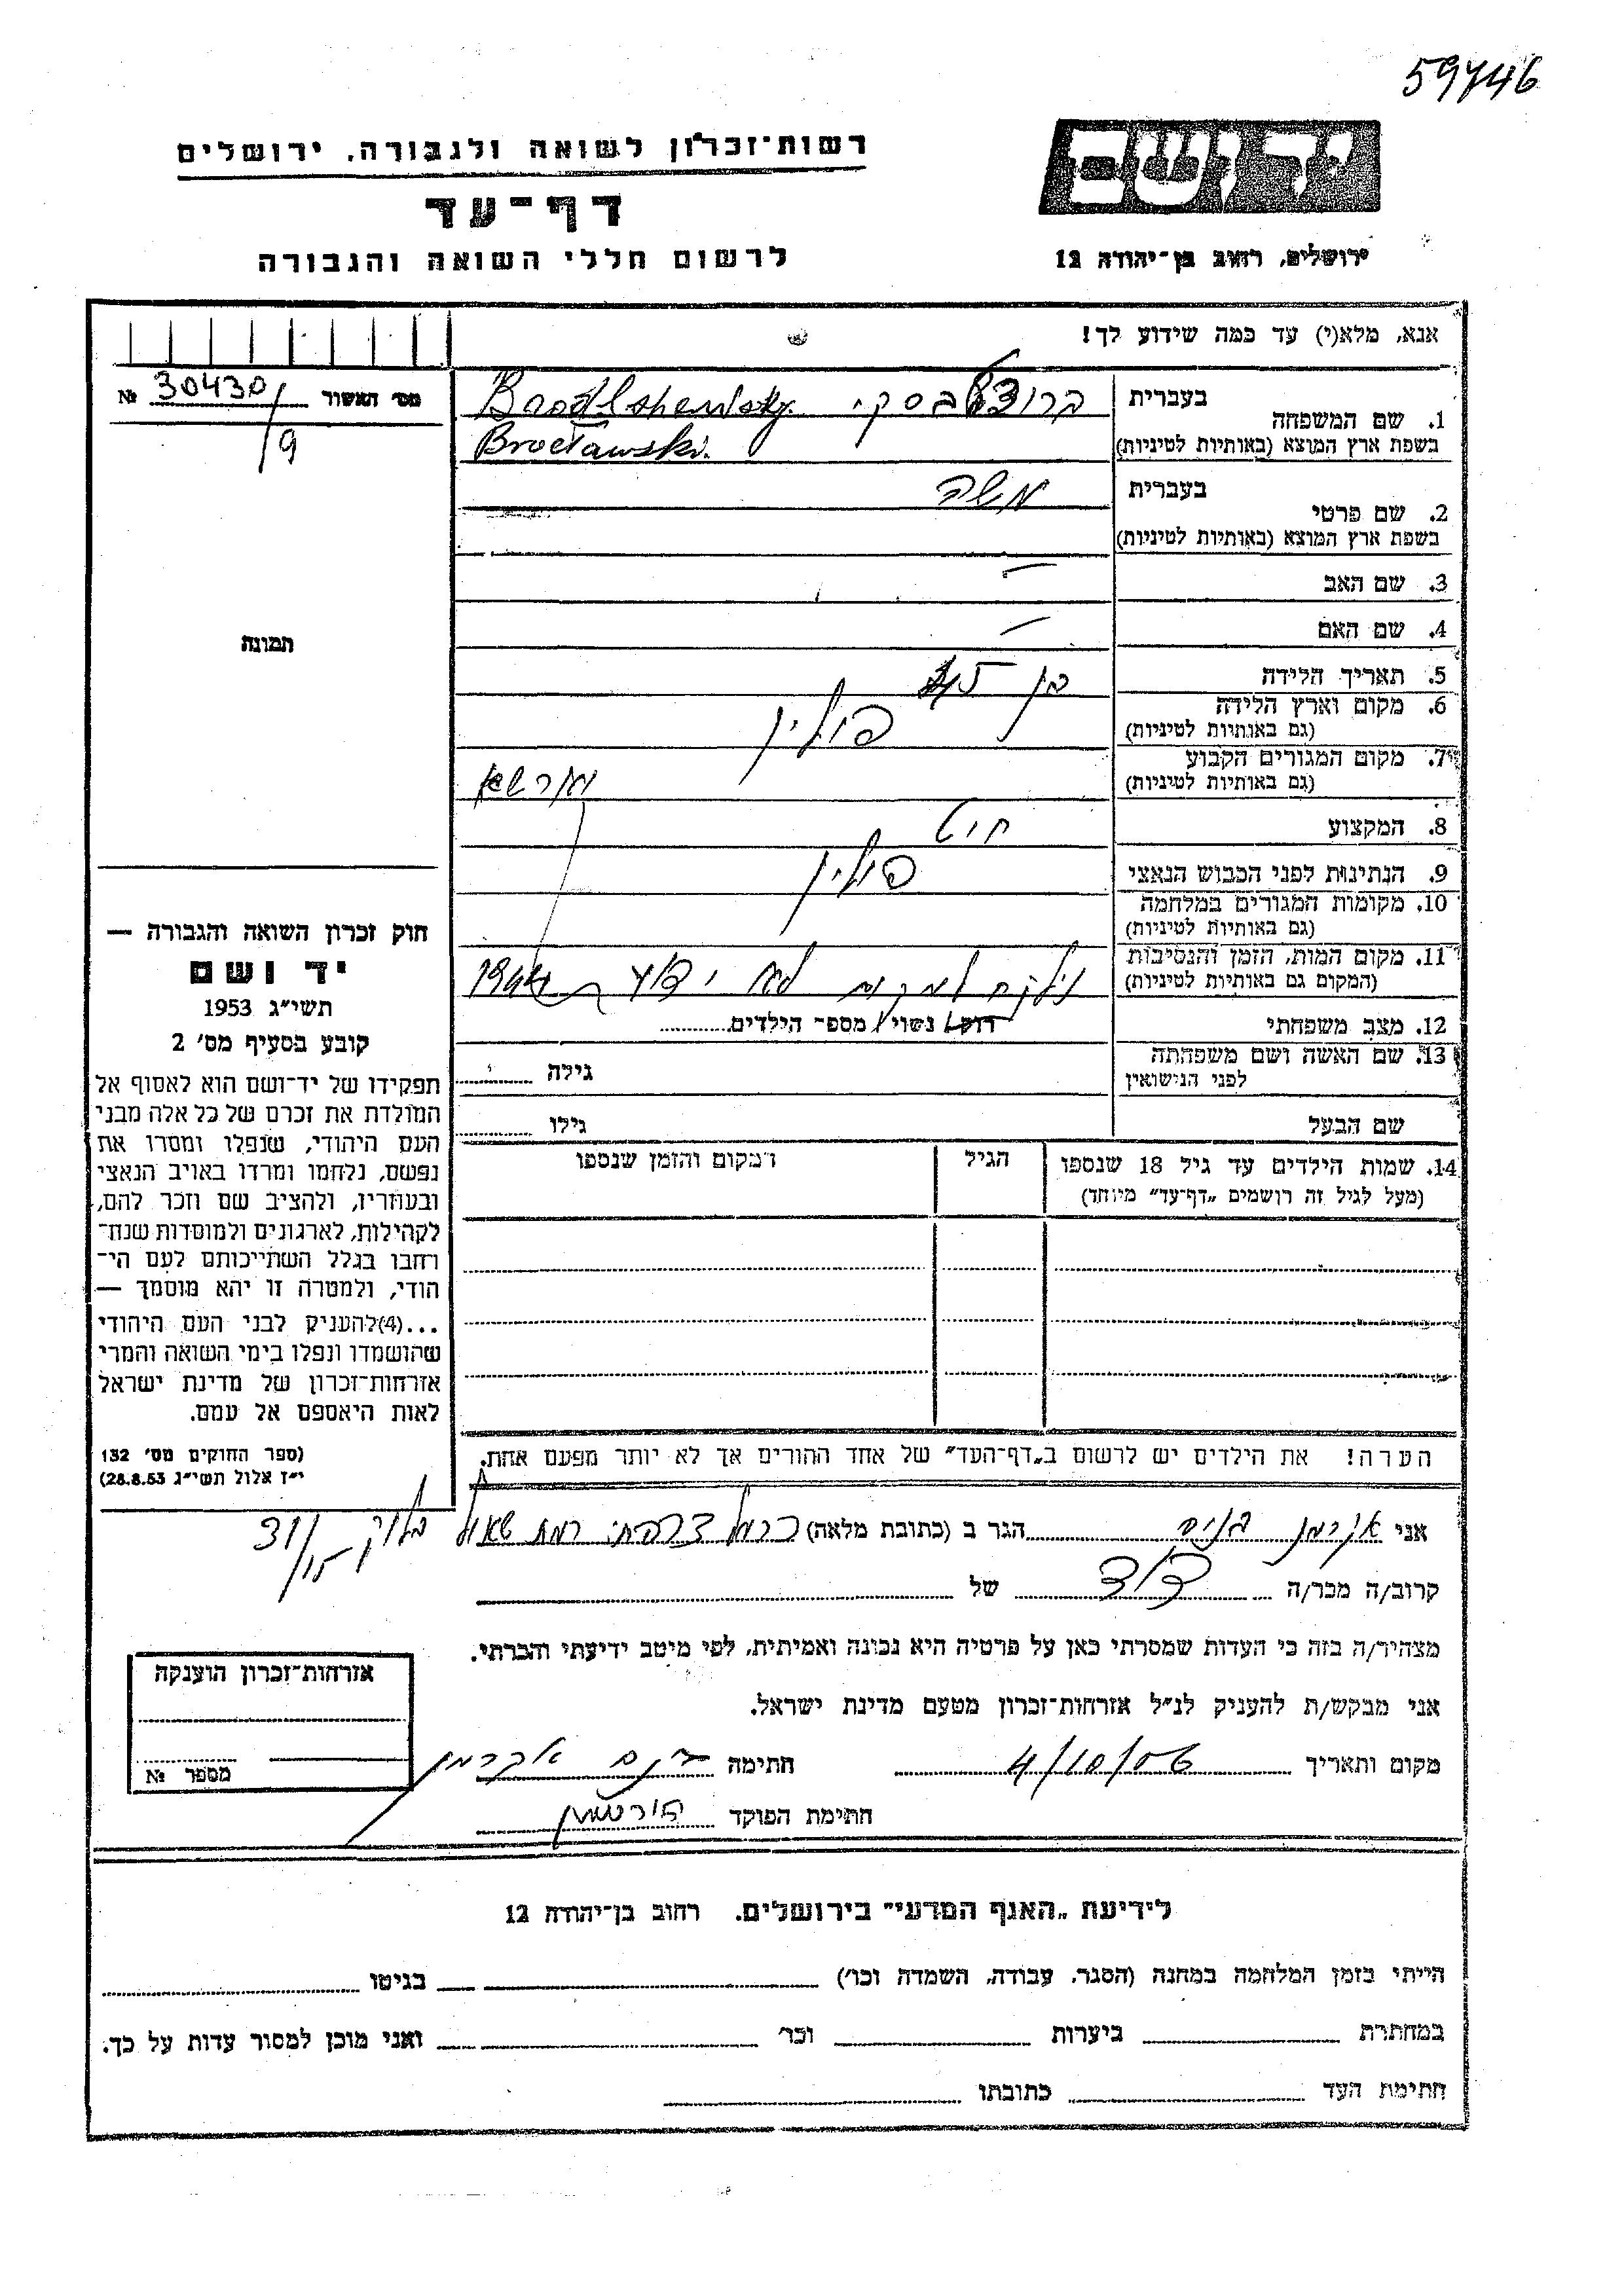 59746
יד ושם
ירושלים, רחוב בן־יהודה 12
רשות־זכרון לשואה ולגבורה, ירושלים
דף־עד
לרשום חללי השואה והגבורה
אנא, מלא(י) עד כמה שידוע לך!
מס׳ האשור № 30430/9
תמונה
חוק זכרון השואה והגבורה —
יד ושם
תשי״ג 1953
קובע בסעיף מס׳ 2
תפקידו של יד־ושם הוא לאסוף אל
המולדת את זכרם של כל אלה מבני
העם היהודי, שנפלו ומסרו את
נפשם, נלחמו ומרדו באויב הנאצי
ובעוזריו, ולהציב שם וזכר להם,
לקהילות, לארגונים ולמוסדות שנח־
רחבו בגלל השתייכותם לעם הי־
הודי, ולמטרה זו יהא מוסמך —
...(4)להעניק לבני העם היהודי
שהושמדו ונפלו בימי השואה והמרי
אזרחות־זכרון של מדינת ישראל
לאות היאספם אל עמם.
(ספר החוקים מס׳ 132
י״ז אלול תשי״ג 28.8.53)
בעברית
1. שם המשפחה
בשפת ארץ המוצא (באותיות לטיניות) Brocławski.
בעברית משה
2. שם פרטי
בשפת ארץ המוצא (באותיות לטיניות)
3. שם האב —
4. שם האם —
5. תאריך הלידה בן
6. מקום וארץ הלידה פולין
(גם באותיות לטיניות)
7. מקום המגורים הקבוע ווארשא
(גם באותיות לטיניות)
8. המקצוע חיט
9. הנתינות לפני הכבוש הנאצי פולין
10. מקומות המגורים במלחמה
(גם באותיות לטיניות)
11. מקום המות, הזמן והנסיבות נילקח למקום לא ידוע ב 1944
(המקום גם באותיות לטיניות)
12. מצב משפחתי רווק/ נשוי/ מספר הילדים
13. שם האשה ושם משפחתה גילה
לפני הנישואין
שם הבעל גילו
14. שמות הילדים עד גיל 18 שנספו הגיל המקום והזמן שנספו
(מעל לגיל זה רושמים „דף־עד״ מיוחד)
הערה! את הילדים יש לרשום ב„דף־העד״ של אחד ההורים אך לא יותר מפעם אחת.
אני אקרמן הגר ב (כתובת מלאה) כרמל צרפתי רמת שאול בלוק 31/15
קרוב/ה מכר/ה דוד של
מצהיר/ה בזה כי העדות שמסרתי כאן על פרטיה היא נכונה ואמיתית, לפי מיטב ידיעתי והכרתי.
אני מבקש/ת להעניק לנ״ל אזרחות־זכרון מטעם מדינת ישראל.
מקום ותאריך 4/10/56 חתימה אקרמן
חתימת הפוקד
אזרחות־זכרון הוענקה
מספר №
לידיעת „האגף המדעי״ בירושלים. רחוב בן־יהודה 12
הייתי בזמן המלחמה במחנה (הסגר, עבודה, השמדה וכו׳) בגיטו
במחתרת ביערות וכו׳ ואני מוכן למסור עדות על כך.
חתימת העד כתובתו